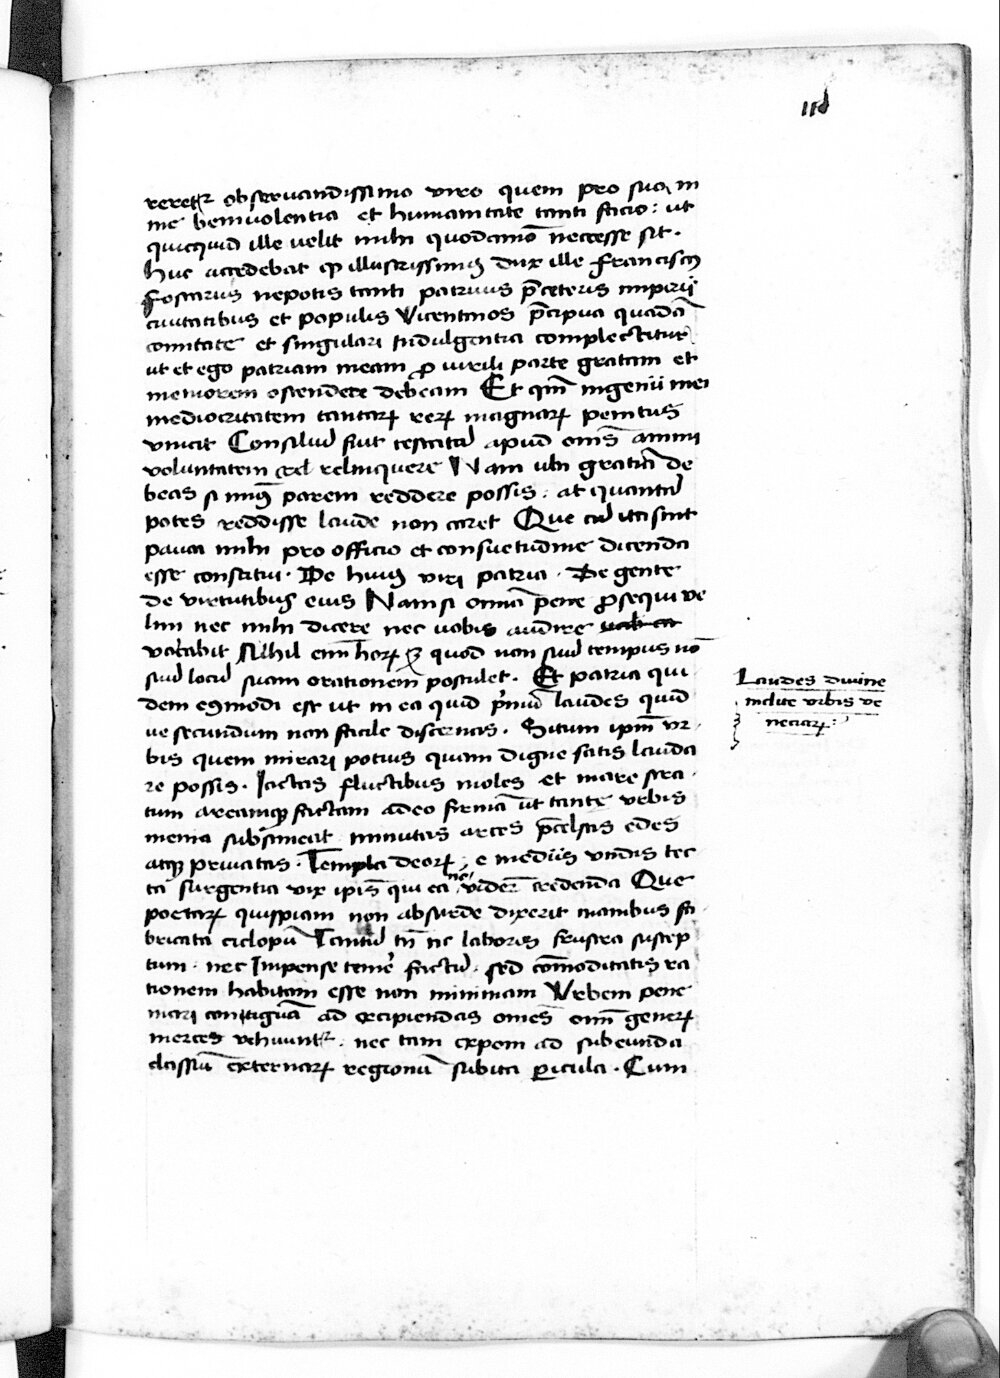 114
reretr observandissimo viro quem pro sua in
me benivolentia et humanitate tanti facio: ut
quicquid ille velit mihi quodamō necesse sit.
Huc accedebat qȝ illustrissimꝰ dux ille Franciscꝰ
Foscarus nepotis tanti patruus p̄ ceteris imperii
civitatibus et populis Vicentinos p̄cipua quadā
comitate et singulari indulgentia complectitur
ut et ego patriam meam ꝓ virili parte gratam et
memorem ostendere debeam Et qm̄ ingenii mei
mediocritatem tantaꝝ reꝝ magnaꝝ penitus
vincit Consiliū fuit testatā apud om̄s animi
voluntatem rel relinquere Nam ubi gratiā de
beas si minꝰ parem reddere possis: at quantū
potes reddisse laude non caret Que cū ita sint
pauca mihi pro officio et consuetudine dicenda
esse constitui. De huiꝰ viri patria. De gente
de virtutibus eius Nam si omnia pene ꝓsequi ve
lim nec mihi dicere nec vobis audire
vacabit Nihil enī hoꝝ ꝫ quod non suū tempus nō
suū locū suam orationem postulet. Et patria qui
dem eꝰmodi est ut in ea quid p̄miū laudes quid
ve secundum non facile discernas. Situm ipm̄ ur
bis quem mirari potius quam digne satis lauda
re possis. Iactas fluctibus moles et mare stra
tum areamqꝫ factam adeo firmā ut tante urbis
menia substineat minutas arces p̄celsas edes
atqꝫ privatas. Templa deoꝝ, e mediis undis tec
ta surgentia vix ipis̄ qui ea ne, viderē credenda Que
poetaꝝ quispiam non absurde dixerit manibus fa
bricata ciclopū Tantū tn̄ nc laboris frustra suscep
tum. nec Impense temere factū. sed com̄oditatis ra
tionem habitam esse non minimam Urbem pene
mari contiguā ad excipiendas omes̄ om̄ geneꝝ
merces vehuuntr. nec tam expom ad subeunda
classiū externaꝝ regionū subita ꝑicula. Cum
Laudes divine
inclite urbis ve
neciaꝝ: